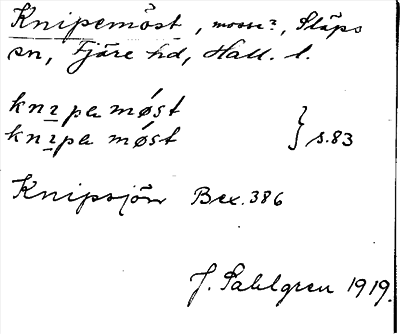 Knipemöst, mosse?, Släps
sn, Fjäre hd, Hall. l.
knɪpa møst
knɪpa møst } s. 83
Knipsjön Bex. 386
J. Sahlgren 1919.